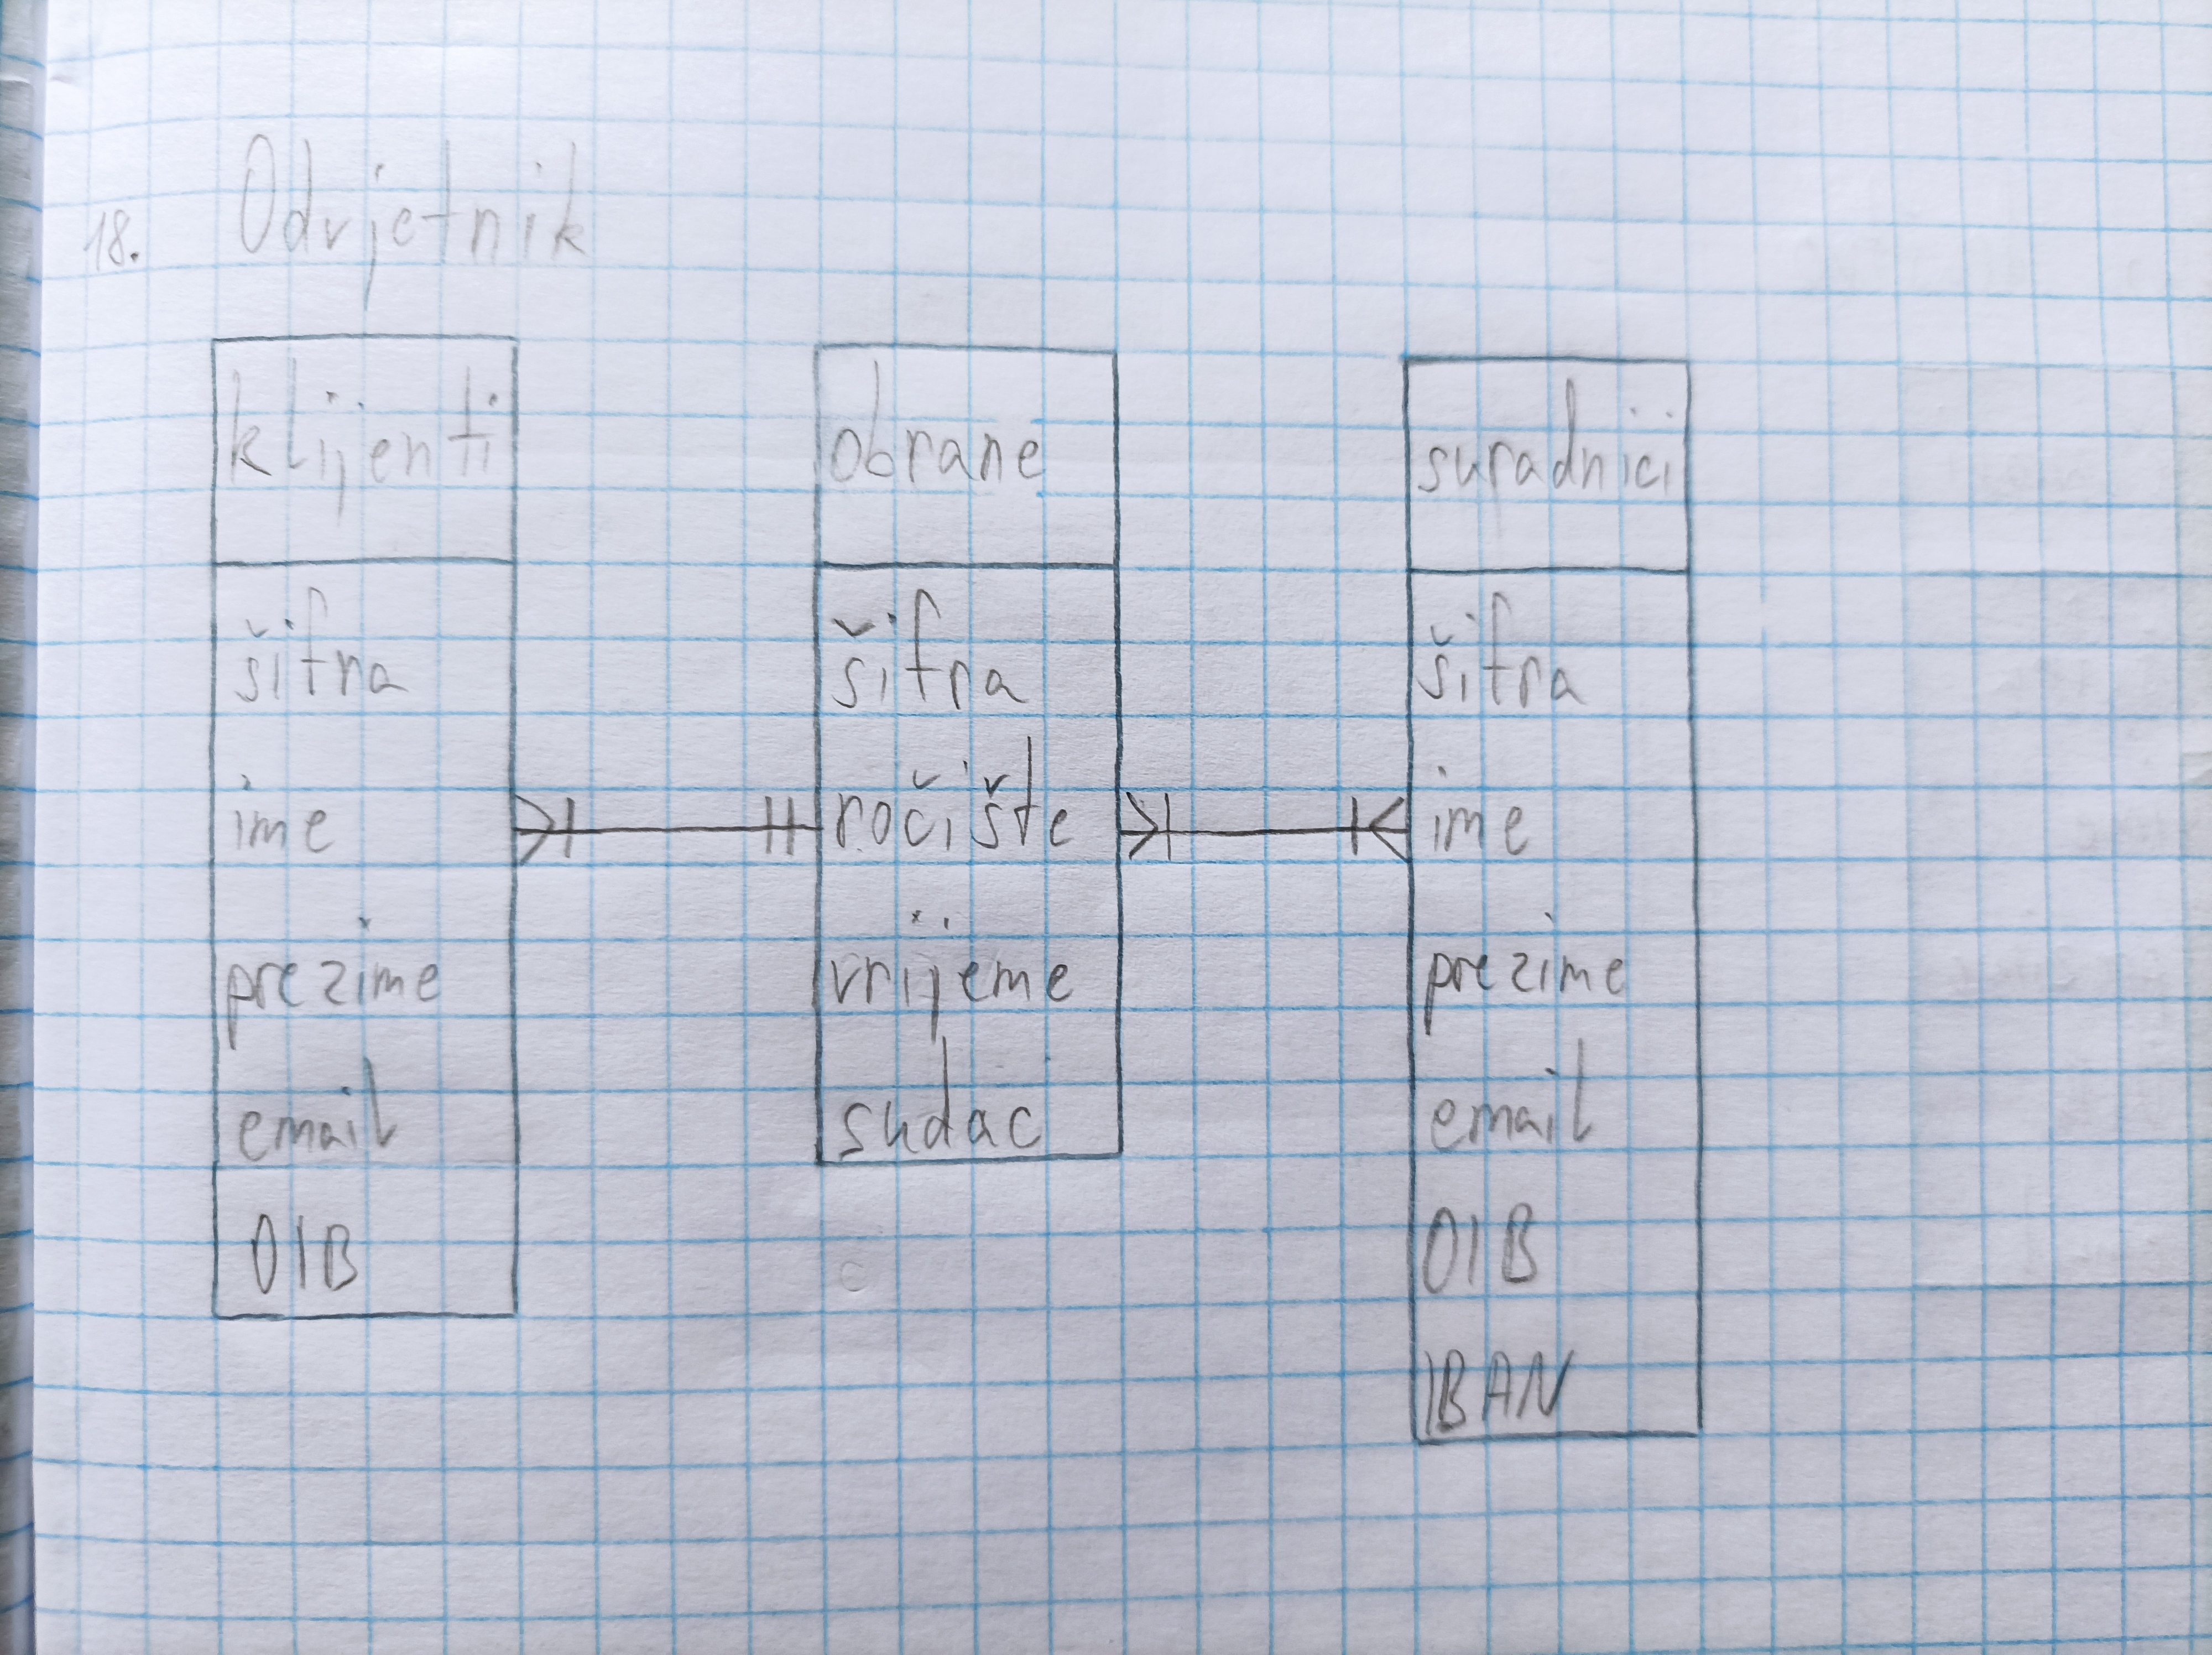 18. Odvjetnik
klijenti
šifra
ime
prezime
email
OIB
obrane
šifra
ročište
vrijeme
sudac
suradnici
šifra
ime
prezime
email
OIB
IBAN